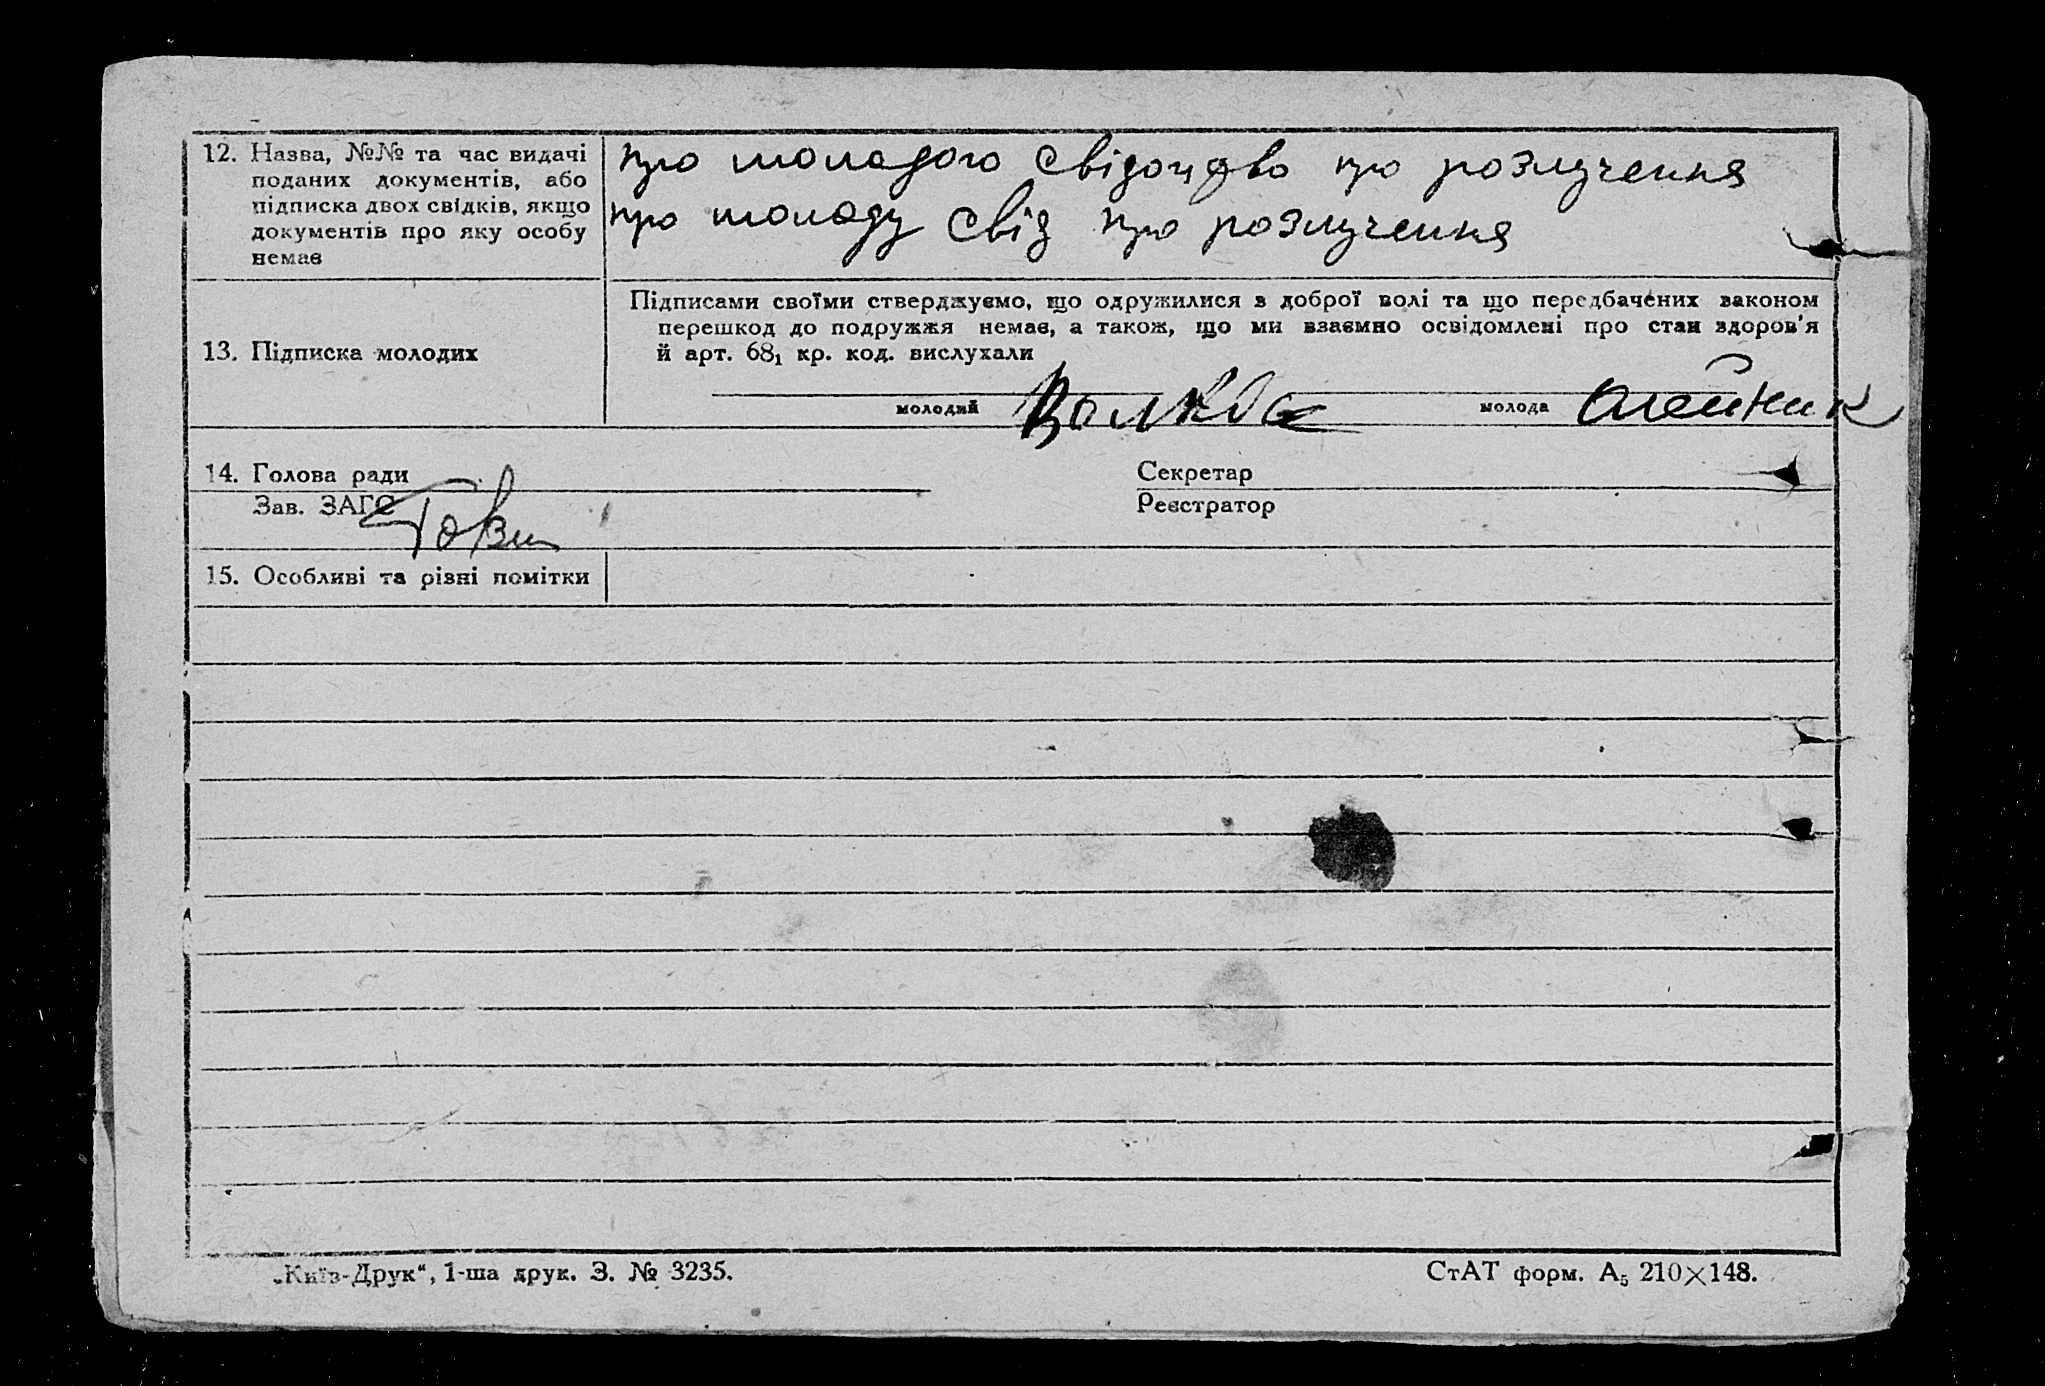 12. Назва, №№ та час видачі
поданих документів, або
підписка двох свідків, якщо
документів про яку особу
немає
про молодого свідоцтво про розлучення
про молоду свід про розлучення
13. Підписка молодих
Підписами своїми стверджуємо, що одружилися з доброї волі та що передбачених законом
перешкод до подружжя немає, а також, що ми взаємно освідомлені про стан здоров'я
й арт. 68₁ кр. код. вислухали
молодий
молода Олейник
14. Голова ради
Секретар
Зав. ЗАГС
Реєстратор
15. Особливі та різні помітки
„Київ-Друк“, 1-ша друк. З. № 3235.
СтАТ форм. А₅ 210×148.